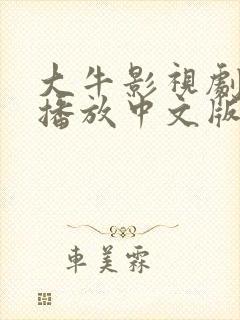 大牛影視劇
播放中文版
車美霖